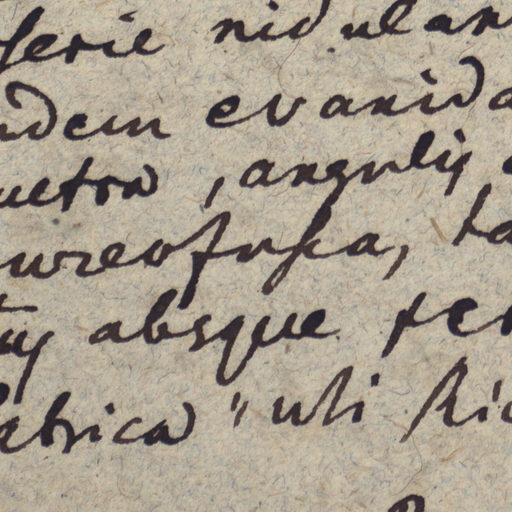 serie nidulan
ndem evanida
uetra, angulis
ureofusca, ta
tus absque ter
latrica uti Ric